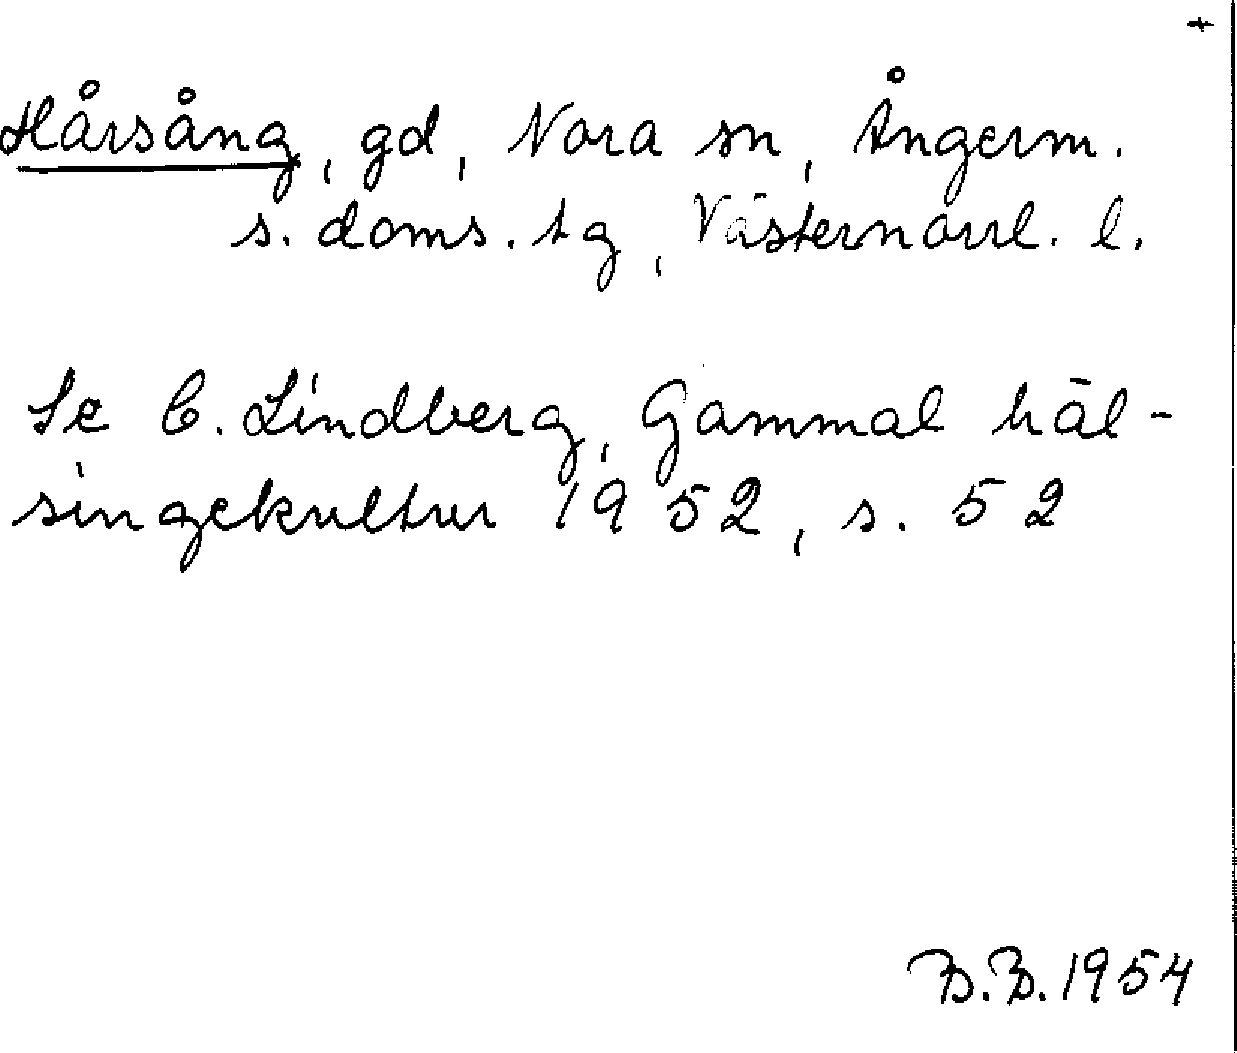 +
Hårsång, gd, Nora sn, Ångerm.
s. doms. tg, Västernorrl. l.
Se C. Lindberg, Gammal häl-
singekultur 1952, s. 52
B.B. 1954